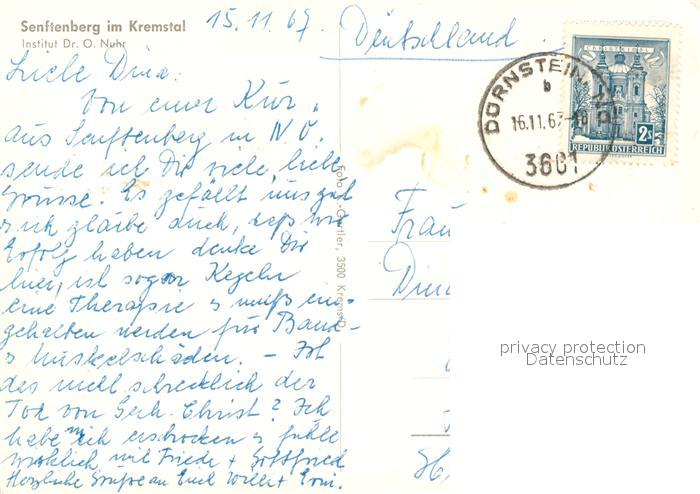 Senftenberg im Kremstal
Institut Dr. O. Nuhr
15.11.67
Deutschland.
Liebe Dina:
Von einer Kur
aus Senftenberg in N.Ö.
sende ich Dir viele, liebe
Grüsse. Es gefällt uns gut
u ich glaube auch, dass wir
Erfolg haben denke Dir
hier, ist sogar Kegeln
eine Therapie u muß ein-
gehalten werden für Band-
u Muskelschäden. – Ist
das nicht schrecklich der
Tod von Gerh. Christ? Ich
habe mich erschrocken u fühle
wirklich mit Friede + Gottfried
Herzliche Grüße an Euch Willi +
Foto 3500 Krems/D.
CHRISTKINDL
DÜRNSTEIN, NÖ
b
16.11.67-18
3601
2S
REPUBLIK ÖSTERREICH
Frau
Dina
privacy protection
Datenschutz